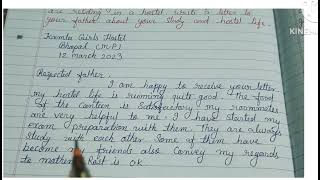 are reading in a hostel write a letter to
your father about your study and hostel life.
KINE
Kamla Girls Hostel
Bhopal (M.P)
12 march 2023
Respected father,
I am happy to receive your letter
my hostel life is running quite good. The food
of the canteen is satisfactory my roommates
are very helpful to me. I have started my
exam preparation with them. They are always
study with each other. Some of them have
become my friends also Convey my regards
to mother. Rest is OK